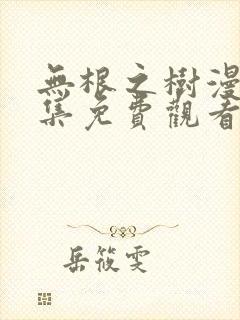 無根之樹漫
集免費觀看
岳筱雯